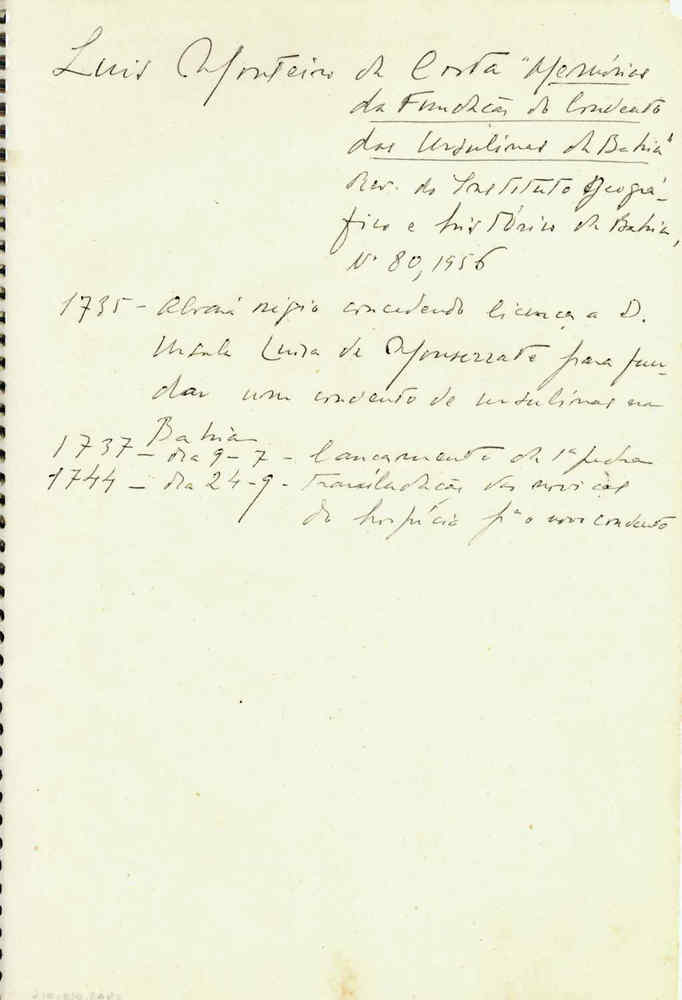 Luis Monteiro da Costa "Memórias
da Fundação do Convento
das Ursulinas da Bahia"
Rev. do Instituto Geográ-
fico e histórico da Bahia,
Nº 80, 1956
1735 - Alvará régio concedendo licença a D.
Ursula Luisa de Monserrate para fun-
dar um convento de ursulinas na
Bahia
1737 - dia 9-7 - lançamento da 1ª pedra
1744 - dia 24-9 - Transladação das noviças
do hospício pª o novo convento